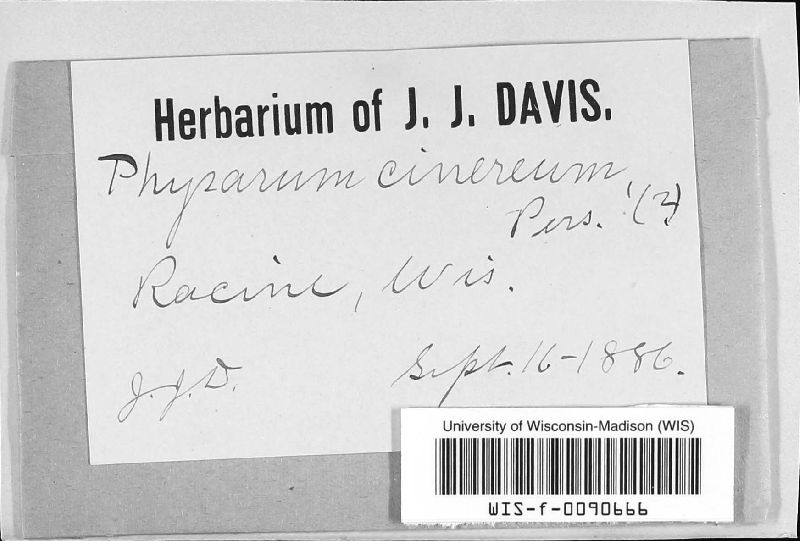 Herbarium of J. J. DAVIS.
Physarum cinereum,
Pers. (?)
Racine, Wis.
J. J. D. Sept. 16-1886.
University of Wisconsin-Madison (WIS)
WIS-f-0090666